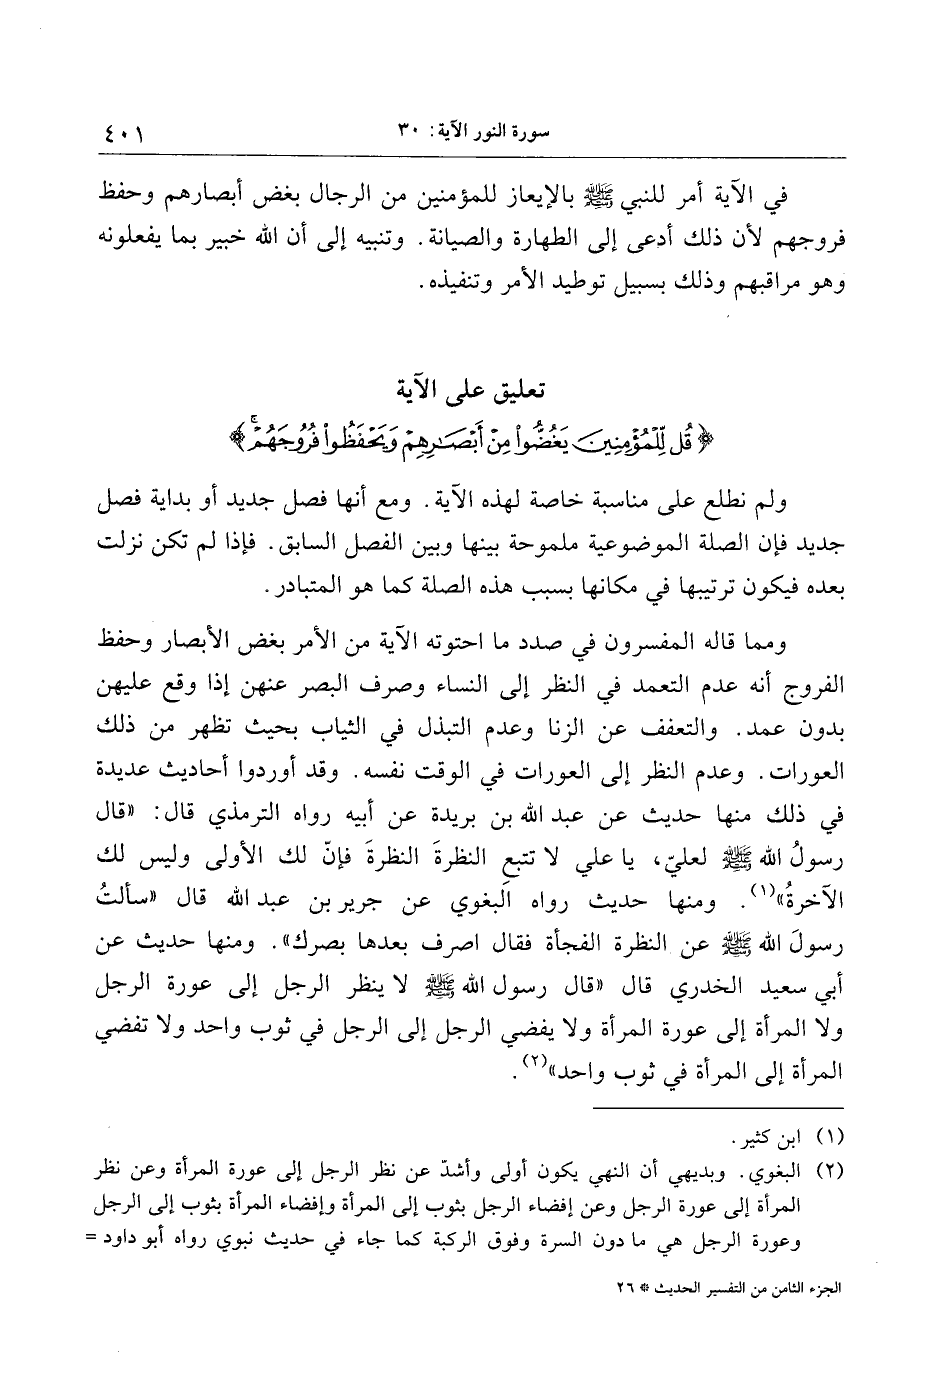 سورة النور الآية: ٣٠
٤٠١
في الآية أمر للنبي ﷺ بالإيعاز للمؤمنين من الرجال بغض أبصارهم وحفظ
فروجهم لأن ذلك أدعى إلى الطهارة والصيانة. وتنبيه إلى أن الله خبير بما يفعلونه
وهو مراقبهم وذلك بسبيل توطيد الأمر وتنفيذه.
تعليق على الآية
﴿ قُل لِّلْمُؤْمِنِينَ يَغُضُّوا۟ مِنْ أَبْصَـٰرِهِمْ وَيَحْفَظُوا۟ فُرُوجَهُمْ ۚ ﴾
ولم نطلع على مناسبة خاصة لهذه الآية. ومع أنها فصل جديد أو بداية فصل
جديد فإن الصلة الموضوعية ملموحة بينها وبين الفصل السابق. فإذا لم تكن نزلت
بعده فيكون ترتيبها في مكانها بسبب هذه الصلة كما هو المتبادر.
ومما قاله المفسرون في صدد ما احتوته الآية من الأمر بغض الأبصار وحفظ
الفروج أنه عدم التعمد في النظر إلى النساء وصرف البصر عنهن إذا وقع عليهن
بدون عمد. والتعفف عن الزنا وعدم التبذل في الثياب بحيث تظهر من ذلك
العورات. وعدم النظر إلى العورات في الوقت نفسه. وقد أوردوا أحاديث عديدة
في ذلك منها حديث عن عبد الله بن بريدة عن أبيه رواه الترمذي قال: «قال
رسولُ الله ﷺ لعليّ، يا علي لا تتبعِ النظرةَ النظرةَ فإنّ لك الأولى وليس لك
الآخرةُ»(١). ومنها حديث رواه البغوي عن جرير بن عبد الله قال «سألتُ
رسولَ الله ﷺ عن النظرة الفجأة فقال اصرف بعدها بصرك». ومنها حديث عن
أبي سعيد الخدري قال «قال رسول الله ﷺ لا ينظر الرجل إلى عورة الرجل
ولا المرأة إلى عورة المرأة ولا يفضي الرجل إلى الرجل في ثوب واحد ولا تفضي
المرأة إلى المرأة في ثوب واحد»(٢).
(١) ابن كثير.
(٢) البغوي. وبديهي أن النهي يكون أولى وأشدّ عن نظر الرجل إلى عورة المرأة وعن نظر
المرأة إلى عورة الرجل وعن إفضاء الرجل بثوب إلى المرأة وإفضاء المرأة بثوب إلى الرجل
وعورة الرجل هي ما دون السرة وفوق الركبة كما جاء في حديث نبوي رواه أبو داود =
الجزء الثامن من التفسير الحديث * ٢٦